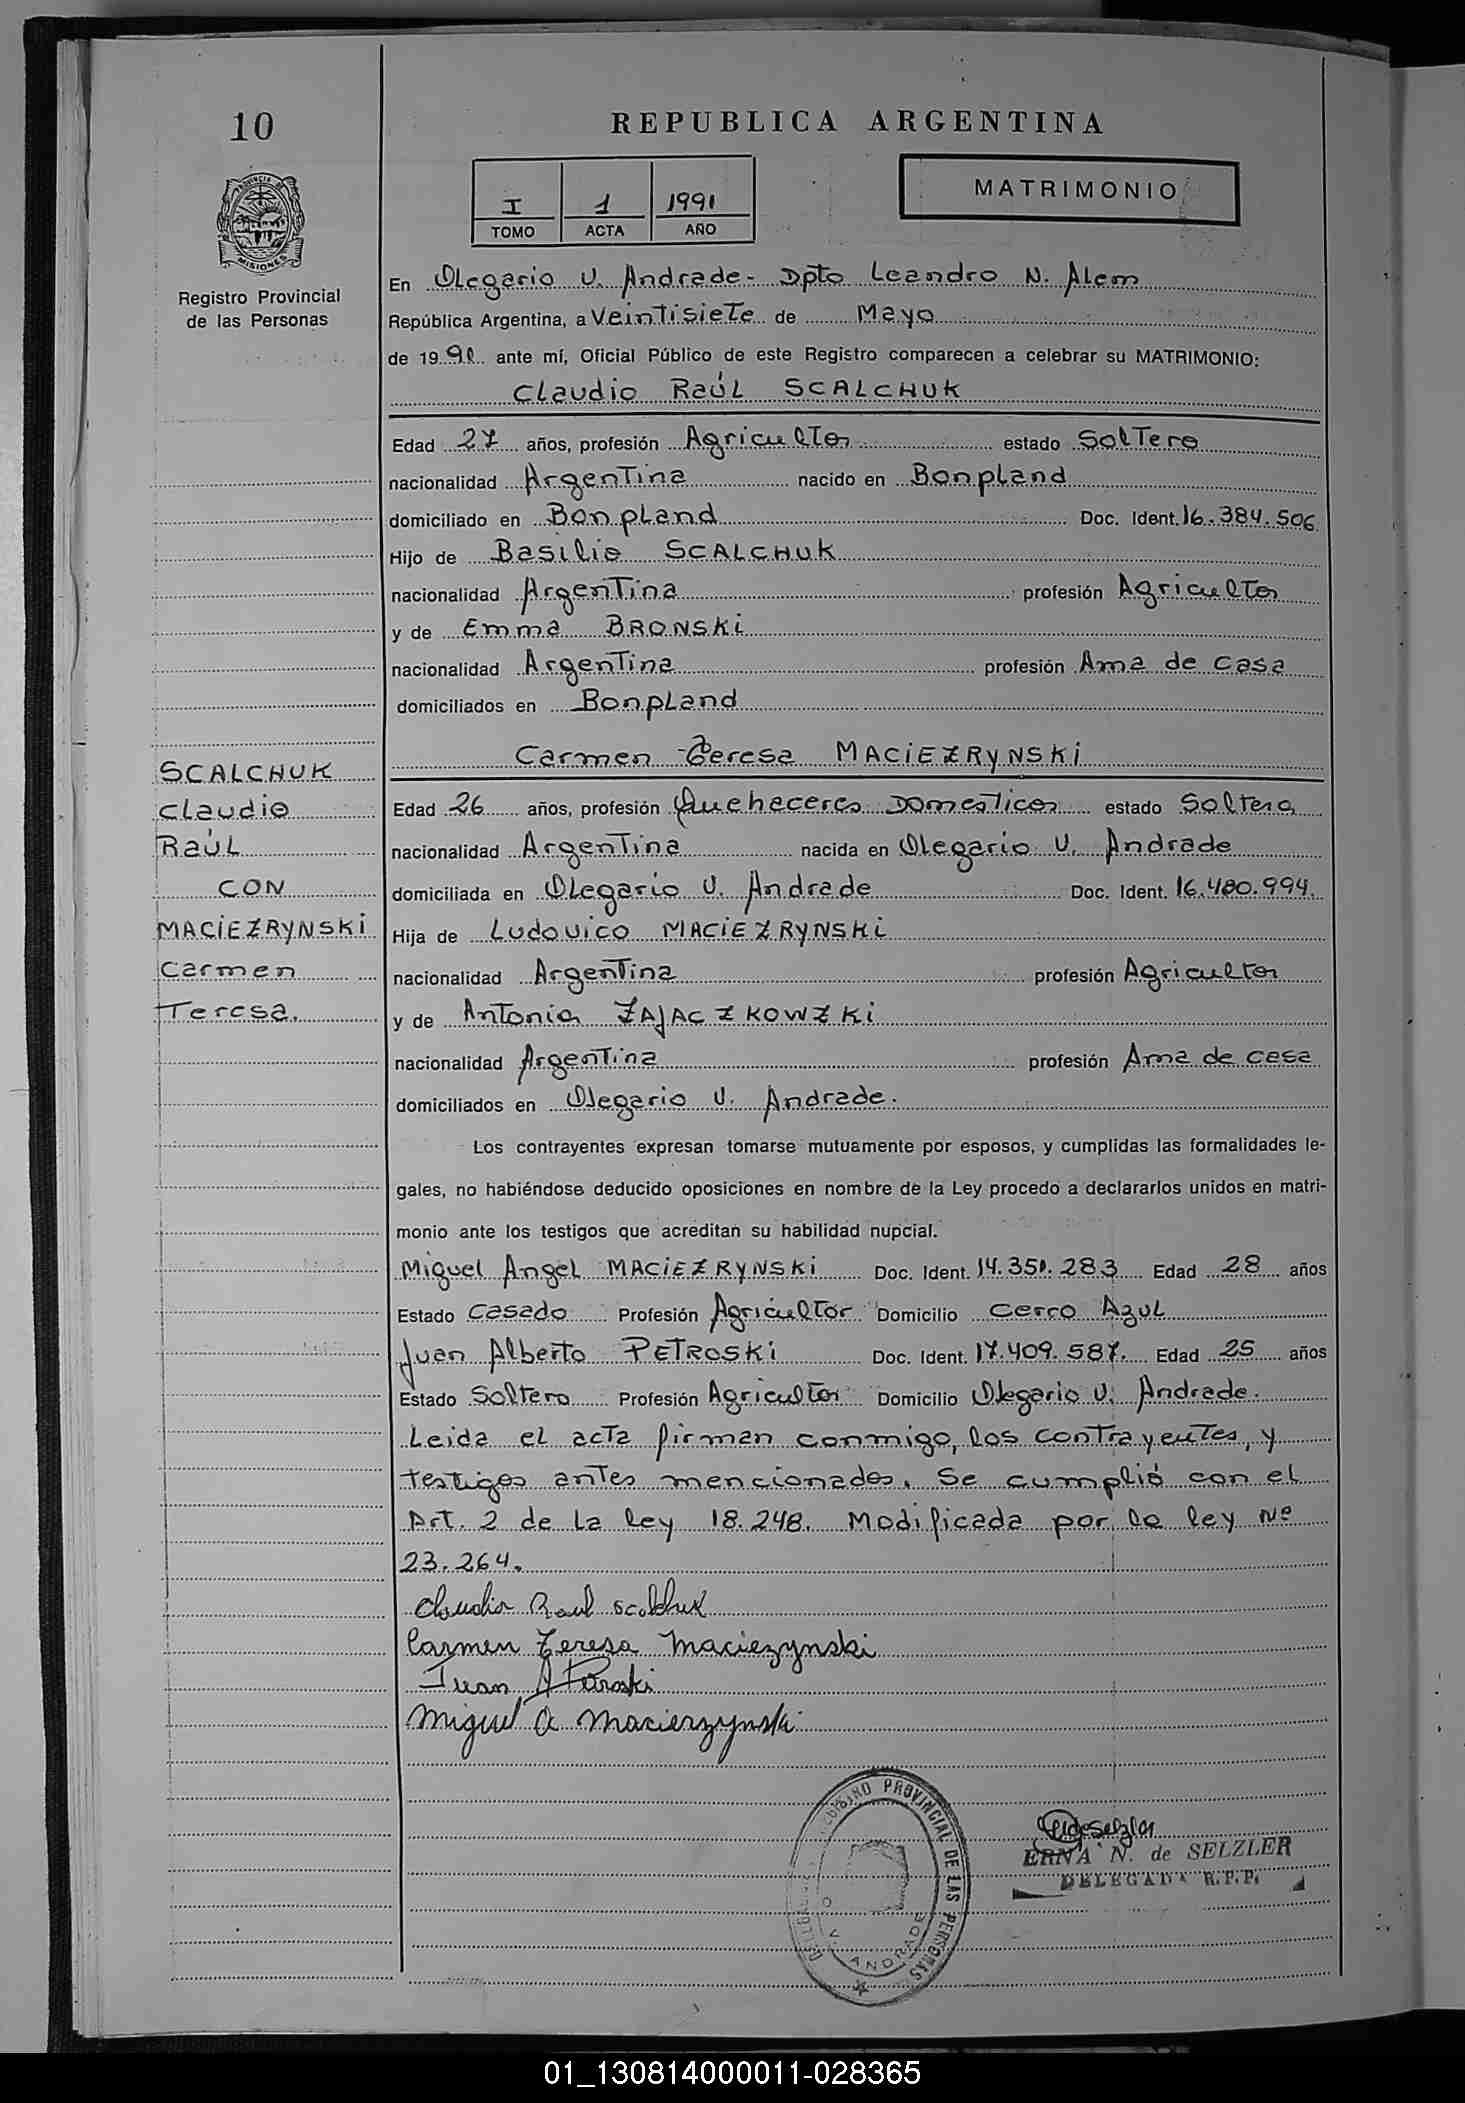 10
REPUBLICA ARGENTINA
PROVINCIA DE
MISIONES
Registro Provincial
de las Personas
I 1 1991
TOMO ACTA AÑO
MATRIMONIO
En Olegario V. Andrade - Dpto Leandro N. Alem
República Argentina, a Veintisiete de Mayo
de 1991 ante mí, Oficial Público de este Registro comparecen a celebrar su MATRIMONIO:
Claudio Raúl SCALCHUK
Edad 27 años, profesión Agricultor estado Soltero
nacionalidad Argentina nacido en Bonpland
domiciliado en Bonpland Doc. Ident. 16.384.506
Hijo de Basilio SCALCHUK
nacionalidad Argentina profesión Agricultor
y de Emma BRONSKi
nacionalidad Argentina profesión Ama de casa
domiciliados en Bonpland
Carmen Teresa MACiEZRyNSKi
Edad 26 años, profesión Quehaceres Domesticos estado Soltera
nacionalidad Argentina nacida en Olegario V. Andrade
domiciliada en Olegario V. Andrade Doc. Ident. 16.480.994.
Hija de Ludovico MACiEZRYNSKi
nacionalidad Argentina profesión Agricultor
y de Antonia ZAJACZKOWZKi
nacionalidad Argentina profesión Ama de casa
domiciliados en Olegario V. Andrade.
SCALCHUK
Claudio
Raúl
CON
MACiEZRyNSKi
Carmen
Teresa.
Los contrayentes expresan tomarse mutuamente por esposos, y cumplidas las formalidades le-
gales, no habiéndose deducido oposiciones en nombre de la Ley procedo a declararlos unidos en matri-
monio ante los testigos que acreditan su habilidad nupcial.
Miguel Angel MACiEZRyNSKi Doc. Ident. 14.351.283 Edad 28 años
Estado Casado Profesión Agricultor Domicilio Cerro Azul
Juan Alberto PETROSKi Doc. Ident. 17.409.587. Edad 25 años
Estado Soltero Profesión Agricultor Domicilio Olegario V. Andrade.
Leida el acta firman conmigo, los contrayentes, y
testigos antes mencionados. Se cumplió con el
Art. 2 de la ley 18.248. Modificada por la ley Nº
23.264.
Claudio Raul Scalchuk
Carmen Teresa Maciezynski
Juan A Petroski
Miguel A Macierzynski
REGISTRO PROVINCIAL DE LAS PERSONAS
O. V. ANDRADE
ERNA N. de SELZLER
DELEGADA R.P.P.
01_130814000011-028365